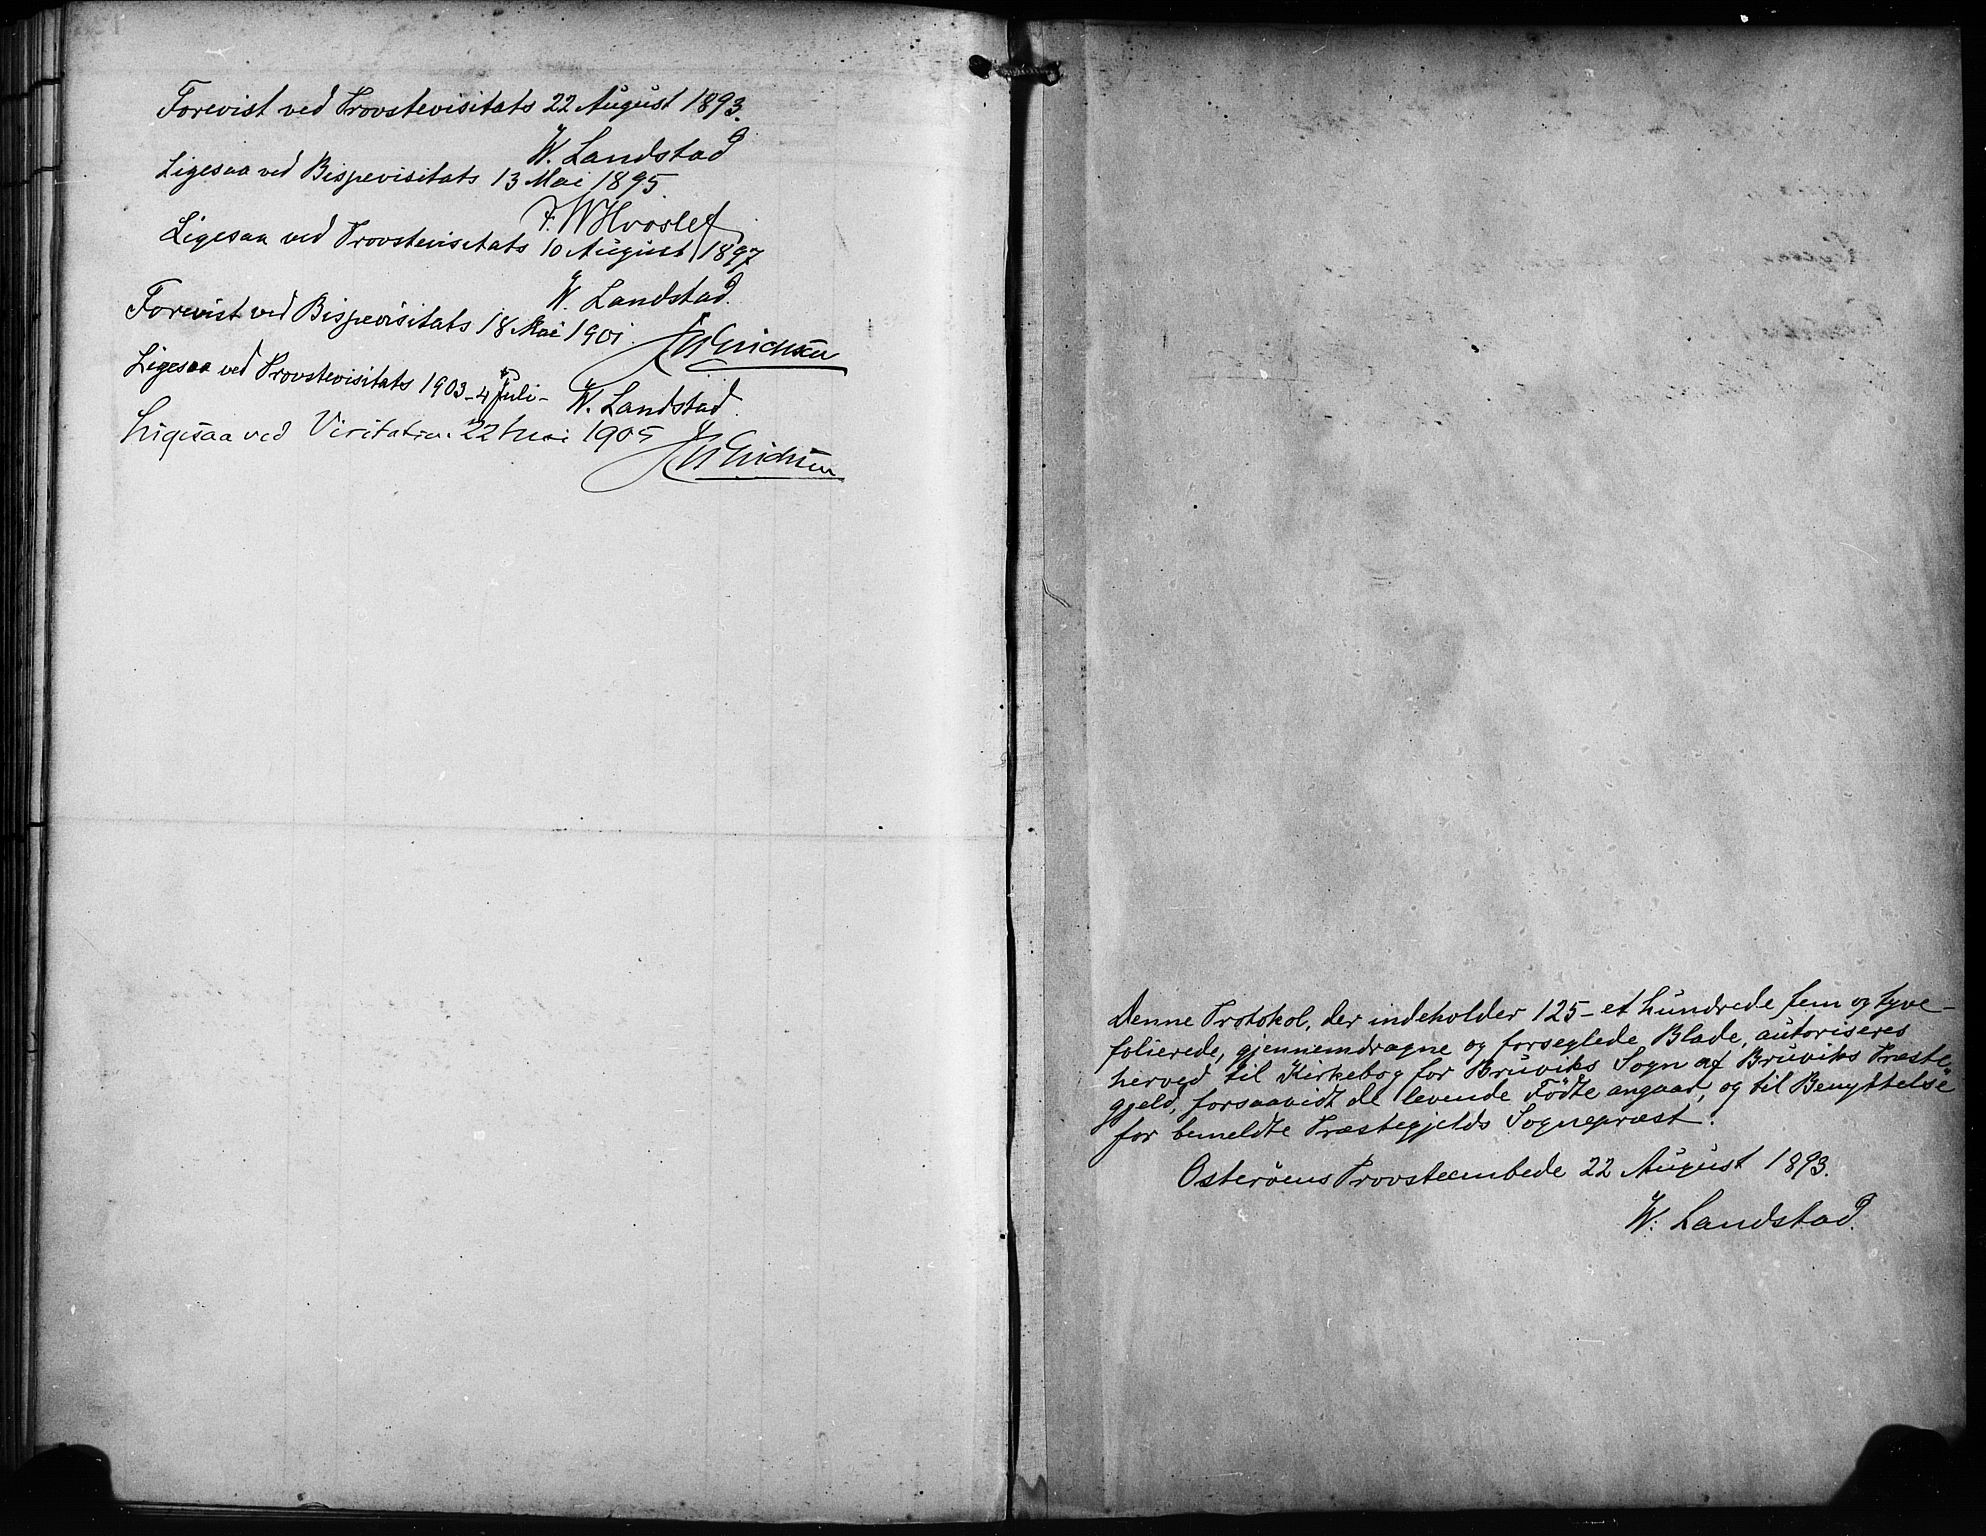 Forevist ved Provstevisitats 22 August 1893.
W. Landstad
Ligesaa ved Bispevisitats 13 Mai 1895
F. W Hvoslef
Ligesaa ved Provstevisitats 10 August 1897
W. Landstad.
Forevist ved Bispevisitats 18 Mai 1901.
Erichsen
Ligesaa ved Provstevisitats 1903 - 4 Juli -
W. Landstad.
Ligesaa ved Visitatsen 22 Mai 1905
Erichsen
Denne Protokol, der indeholder 125 - et hundrede fem og tyve -
folierede, gjennemdragne og forseglede Blade, autoriseres
herved til Kirkebog for Bruviks Sogn af Bruviks Præste-
gjeld, forsaavidt de levende Födte angaar, og til Benyttelse
for bemeldte Præstegjelds Sognepræst.
Osteröens Provsteembede 22 August 1893.
W. Landstad.